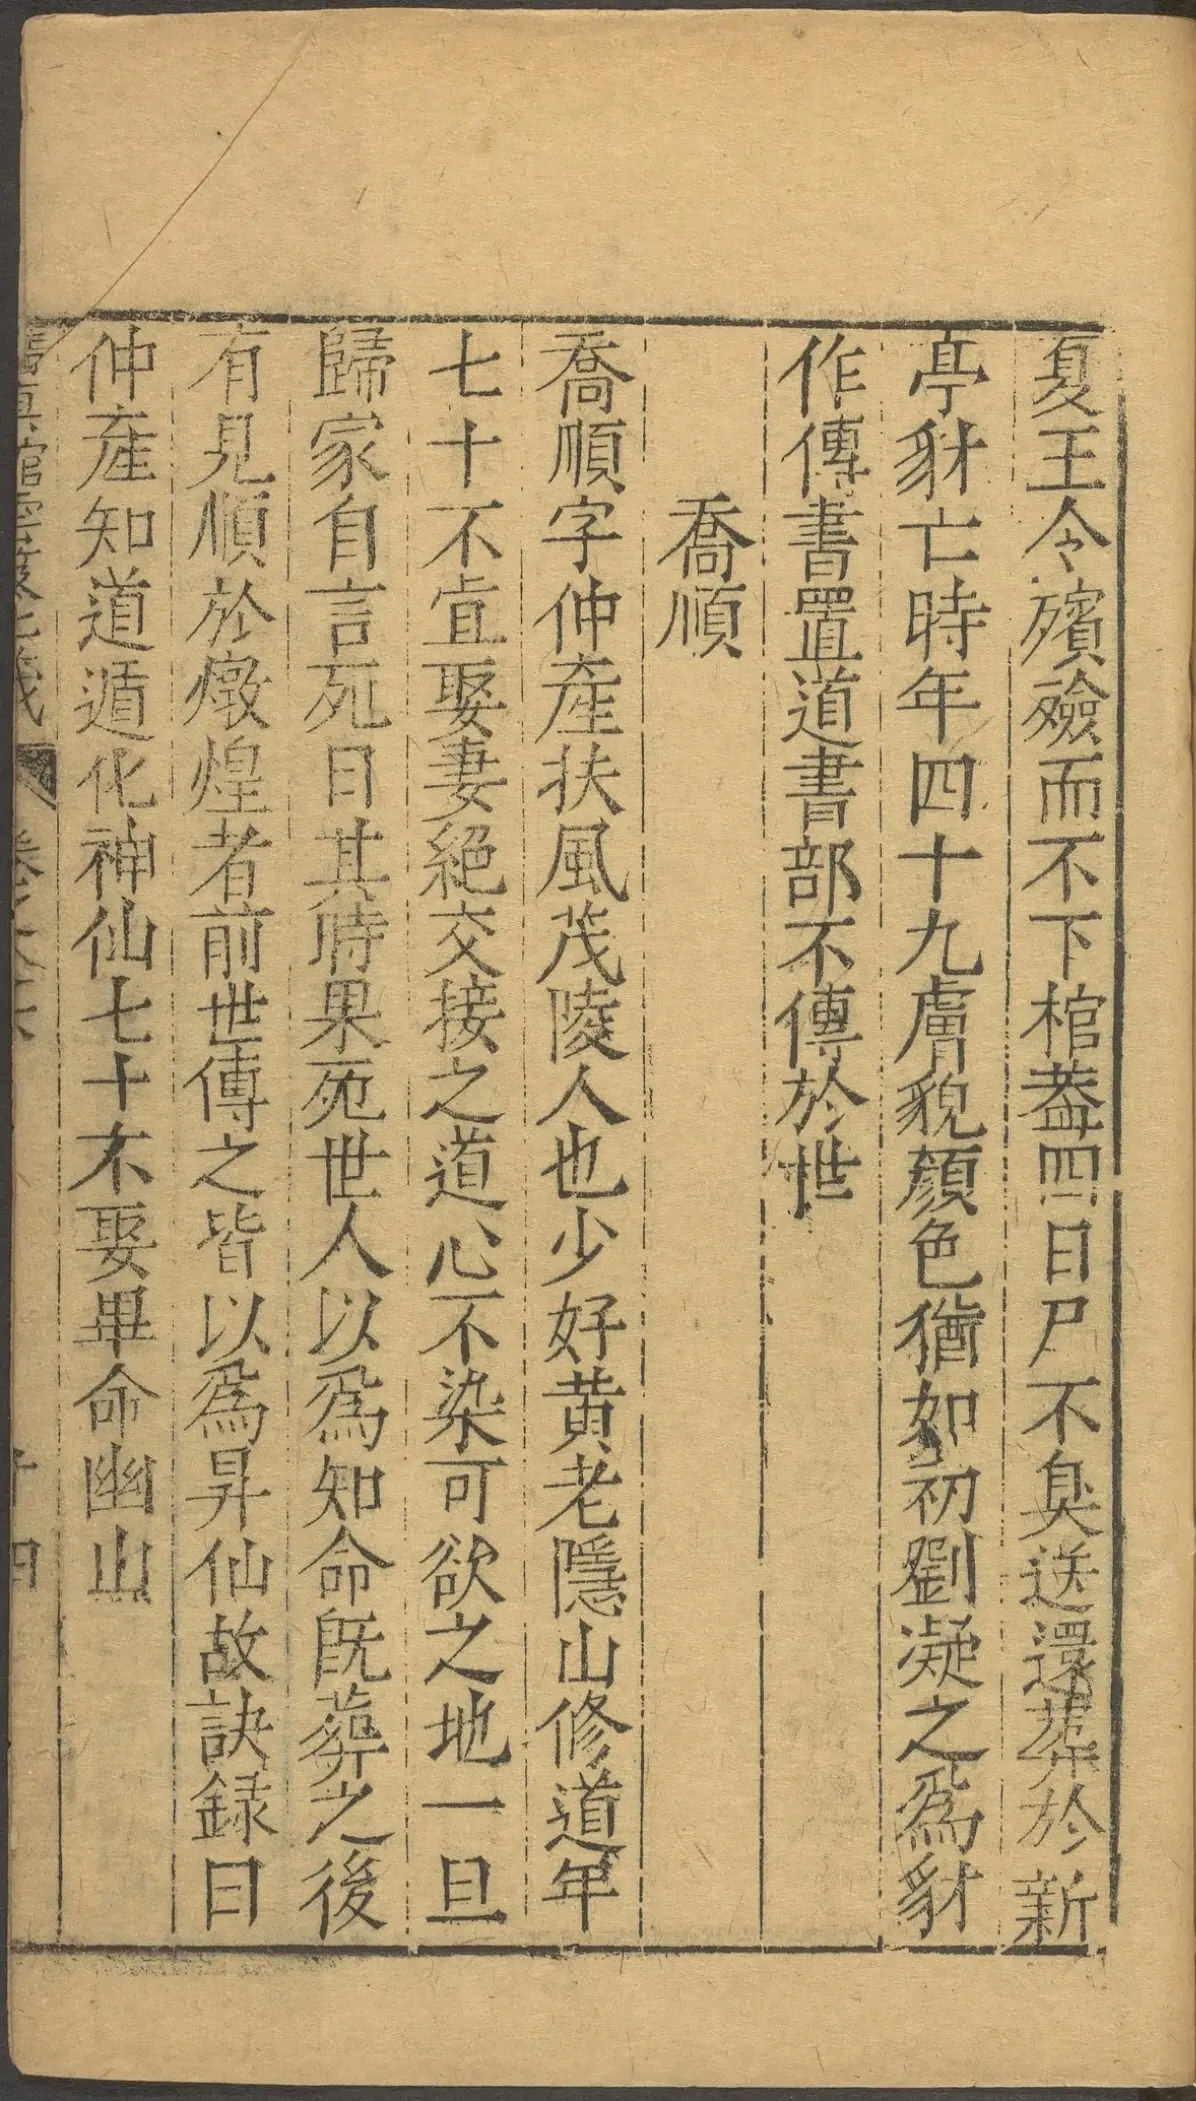 夏王令殯殮而不下棺葢四日尸不臭送還葬於新
亭豺亡時年四十九膚貌顏色猶如初劉凝之爲豺
作傳書置道書部不傳於世
喬順
喬順字仲產扶風茂陵人也少好黄老隱山修道年
七十不宜娶妻絕交接之道心不染可欲之地一旦
歸家自言死日其時果死世人以爲知命旣葬之後
有見順於燉煌者前世傳之皆以爲昇仙故訣録曰
仲產知道遁化神仙七十不娶畢命幽山